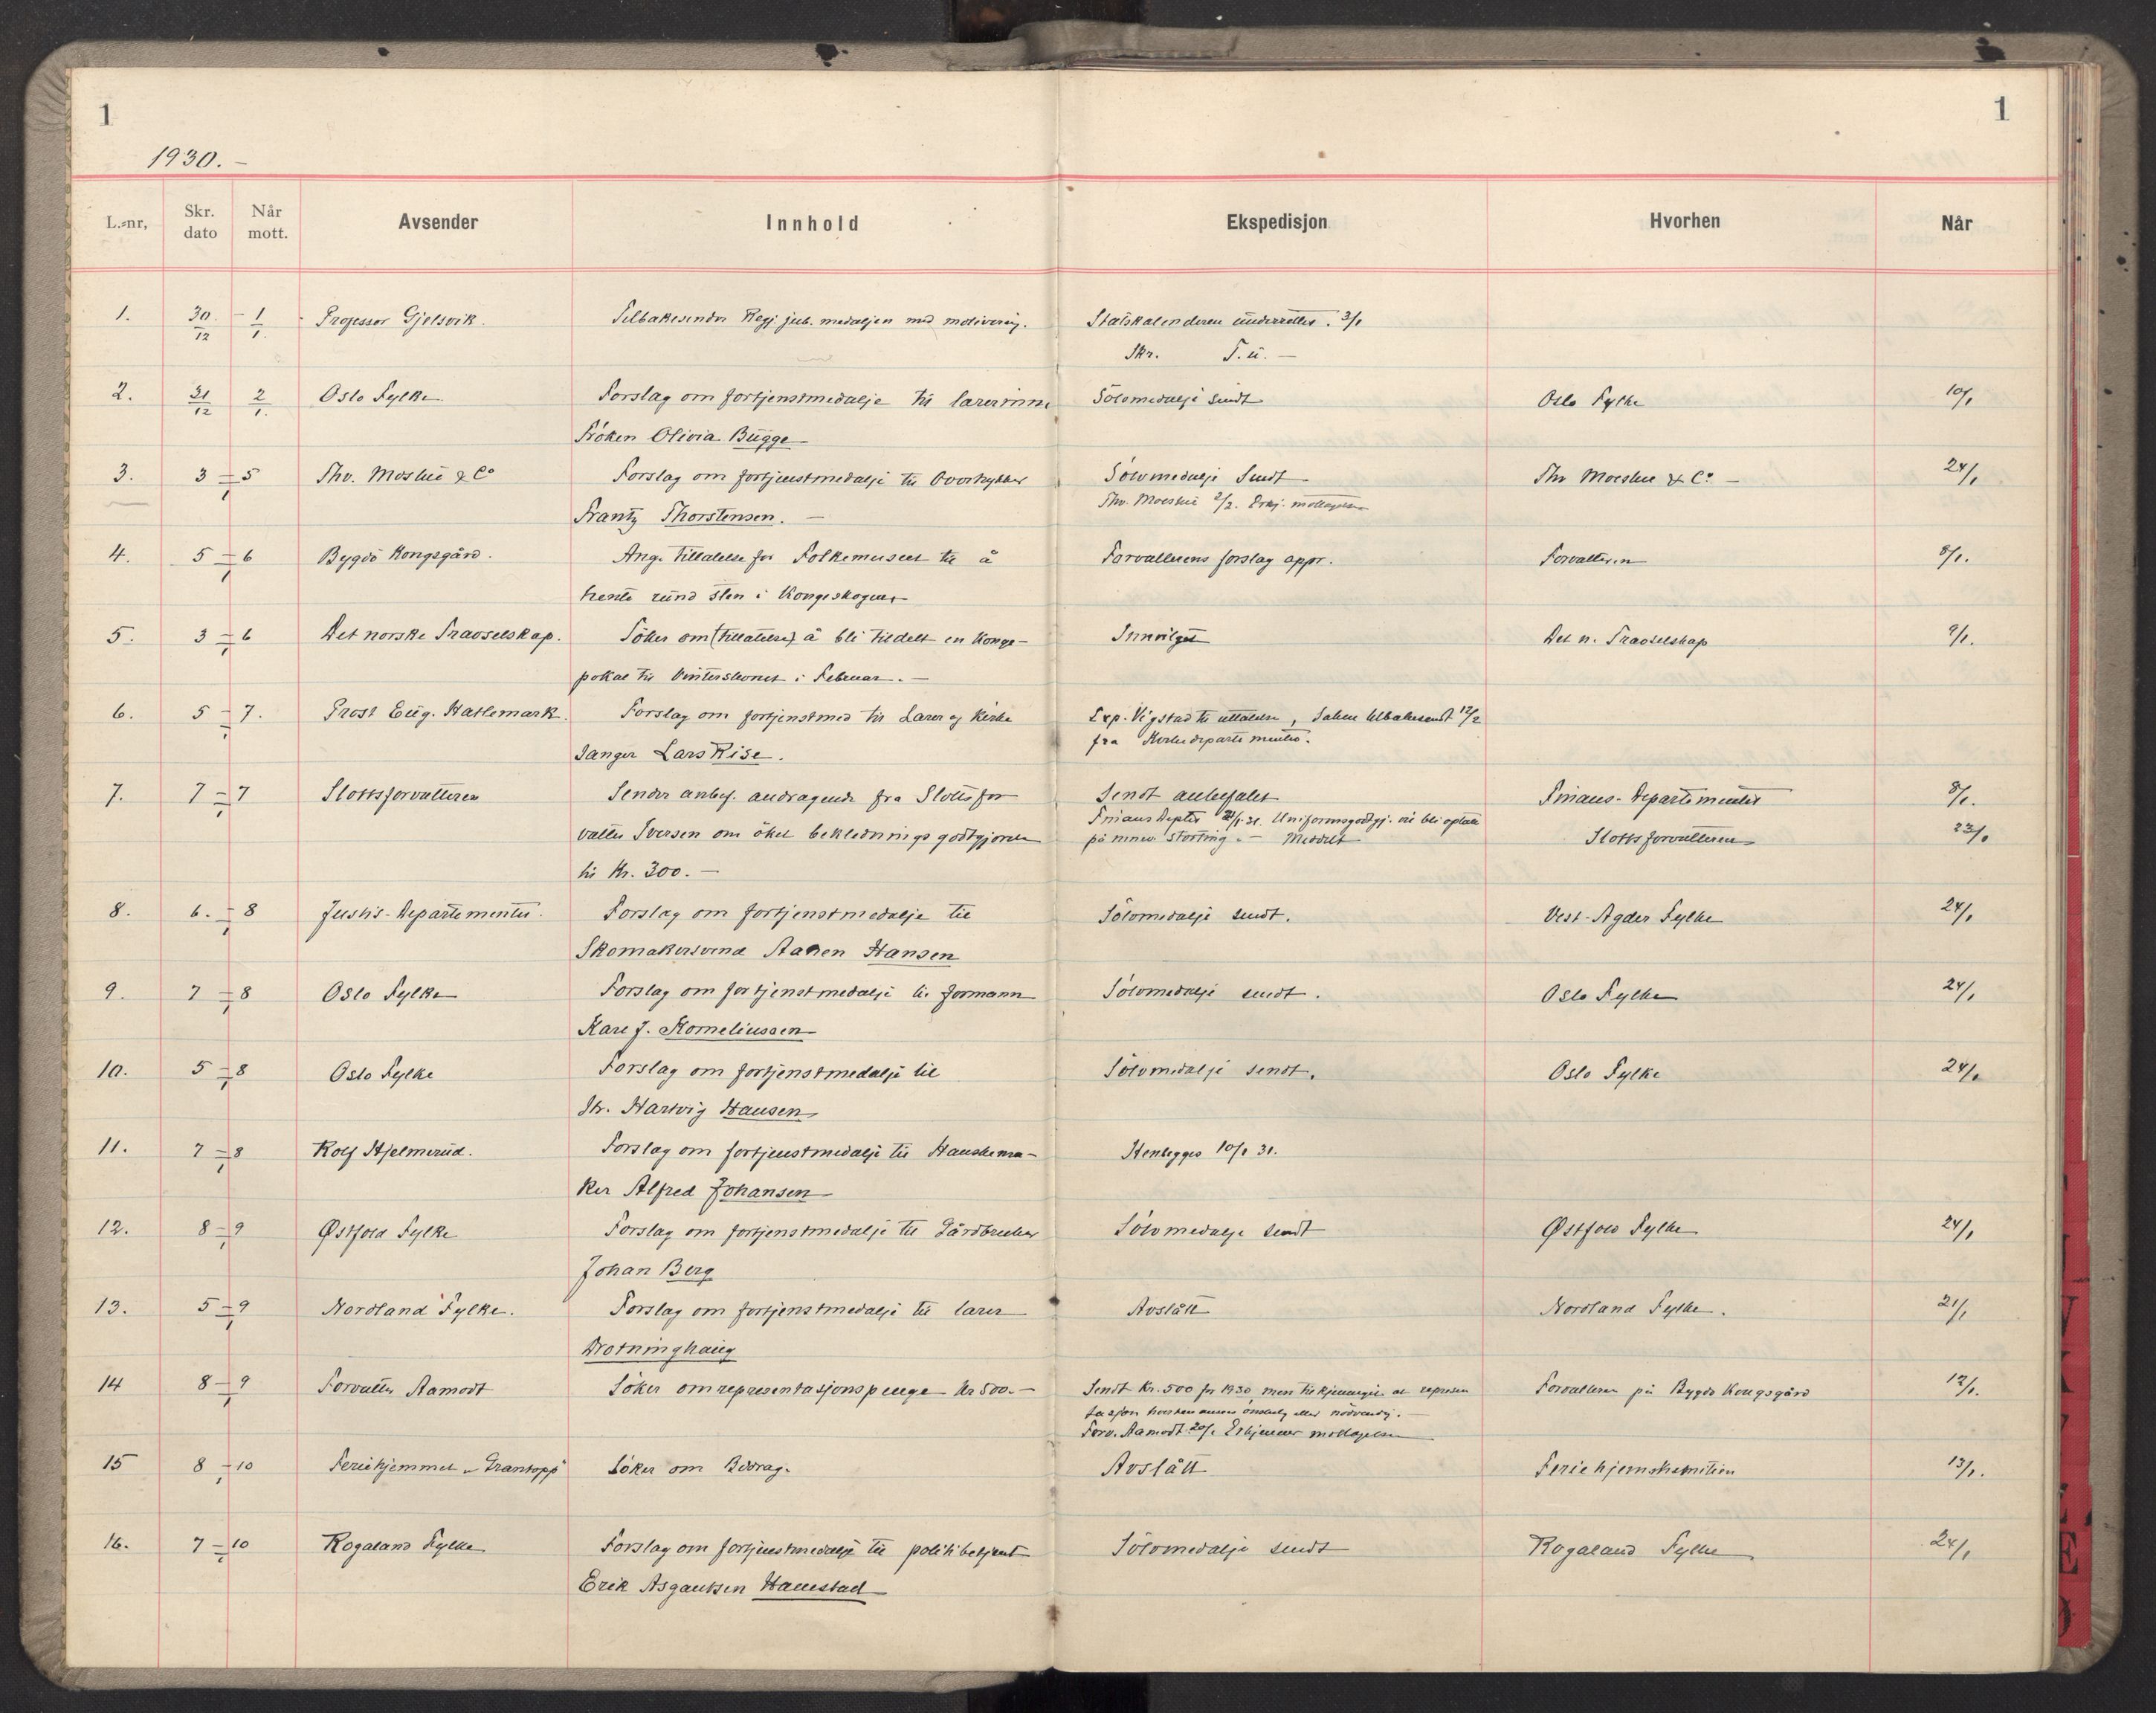 1
1
1930.—
L.-nr. Skr. dato Når mott. Avsender Innhold Ekspedisjon Hvorhen Når
1. 30/12 1/1. Professor Gjelsvik. Tilbakesender Regj. jub. medaljen med motivering. Statskalenderen underrettet. 3/1
Skr. T. u. —
2. 31/12 2/1. Oslo Fylke Forslag om fortjenstmedalje til lærerinne Sölvmedalje sendt Oslo Fylke 10/1
Fröken Olivia Bugge
3. 3 5/1 Thv. Moestue & Co Forslag om fortjenstmedalje til Sölvmedalje Sendt Thv Moestue & Co — 24/1
Frantz Thorstensen. — Thv. Moestue 2/2. Erkj. mottagelsen
4. 5 6/1 Bygdö Kongsgård. Ang. tillatelse for Folkemuseet til å Forvalterens forslag appr. Forvalteren 8/1.
hente rund sten i Kongeskogen
5. 3 6/1 Det norske Travselskap. Söker om (tillatelse) å bli tildelt en Konge- Innvilget Det n. Travselskap 9/1.
pokal til Vinterstevnet i Februar. —
6. 5 7/1. Prost Eug. Hatlemark. Forslag om fortjenstmed til Lærer og Kirke Exp. Vigstad til uttalelse, Saken tilbakesendt 12/2
sanger Lars Rise. fra Kirkedepartementet.
7. 7 7/1 Slottsforvalteren Sender anbef. andragende fra Slottsfor Sendt anbefalet Finans-Departementet 8/1.
valter Iversen om öket beklednings godtgjörelse Finans Deptet 31. Uniformsgodtgj. vil bli optatt
på Storting. — Meddelt Slottsforvalteren 23/1
til Kr. 300. —
8. 6. 8/1 Justis-Departementet. Forslag om fortjenstmedalje til Sölvmedalje sendt. Vest-Agder Fylke 24/1
Skomakersvend Aanen Hansen
9. 7 8/1 Oslo Fylke Forslag om fortjenstmedalje til formann Sölvmedalje sendt. Oslo Fylke 24/1
Kare J. Korneliussen
10. 5 8/1 Oslo Fylke Forslag om fortjenstmedalje til Sölvmedalje sendt. Oslo Fylke 24/1
Hr. Hartvig Hansen
11. 7 8/1 Rolf Hjelmerud. Forslag om fortjenstmedalje til Hanskema- Henlegges 10/1 31.
ker Alfred Johansen
12. 8 9/1 Østfold Fylke Forslag om fortjenstmedalje til Gårdbruker Sölvmedalje sendt Østfold Fylke 24/1
Johan Berg
13. 5 9/1 Nordland Fylke. Forslag om fortjenstmedalje til lærer Avslått Nordland Fylke. 21/1
Drotninghaug
14 8 9/1 Forvalter Aamodt Söker om representasjonspenge Kr 500. — Sendt Kr. 500 for 1930 men tilkjennegir at represen Forvalteren på Bygdö Kongsgård 12/1.
tasjon önskelig eller nödvendig. —
Forv. Aamodt 20/1 Erkjenner mottagelsen
15 8 10/1 Feriehjemmet „Grantopp" Söker om Bidrag. Avslått Feriehjemskomiteen 13/1.
16. 7 10/1 Rogaland Fylke Forslag om fortjenstmedalje til politibetjent Sölvmedalje sendt Rogaland Fylke 24/1
Erik Asgautsen Haustad